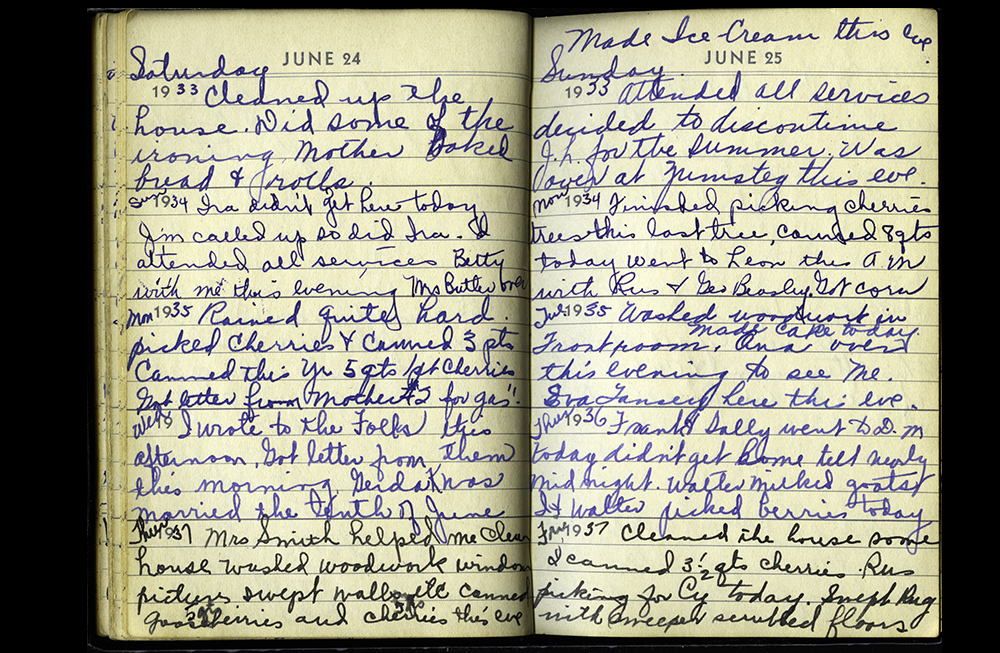 JUNE 24
Saturday
1933 Cleaned up the
house. Did some of the
ironing, Mother baked
bread & rolls.
Sun 1934 Ira didn't get here today
Jim called up so did Ira. I
attended all services Betty
with me this evening Mrs Butler over
Mon 1935 Rained quite hard.
picked Cherries & canned 3 pts
Canned this Yr 5 qts 1 pt Cherries
Got letter from Mother #2 for gas".
Wed 19 I wrote to the Folks this
afternoon, Got letter from them
this morning, Gerda was
married the tenth of June
Thur 1937 Mrs Smith helped me clean
house washed woodwork window
pictures swept walls etc canned
gooseberries and cherries this eve
Made Ice Cream this Eve.
JUNE 25
Sunday.
1933 Attended all services
decided to discontinue
J.h. for the Summer. Was
over at Zumsteg this eve.
Mon 1934 Finished picking cherries
trees this last tree, canned 8 qts
today went to Leon this A.M
with Rus & Geo Beasly. Got corn
Tue 1935 Washed woodwork in
made cake today.
Front room, Ona over
this evening to see me.
Eva Tansey here this eve.
Thur 1936 Frank & Sally went to D.M
today didn't get home till nearly
midnight. Walter milked goats
I & Walter picked berries today
Fri 1937 Cleaned the house some
& canned 3 1/2 qts cherries. Rus
picking for Cy today. Swept Rug
with sweeper scrubbed floors